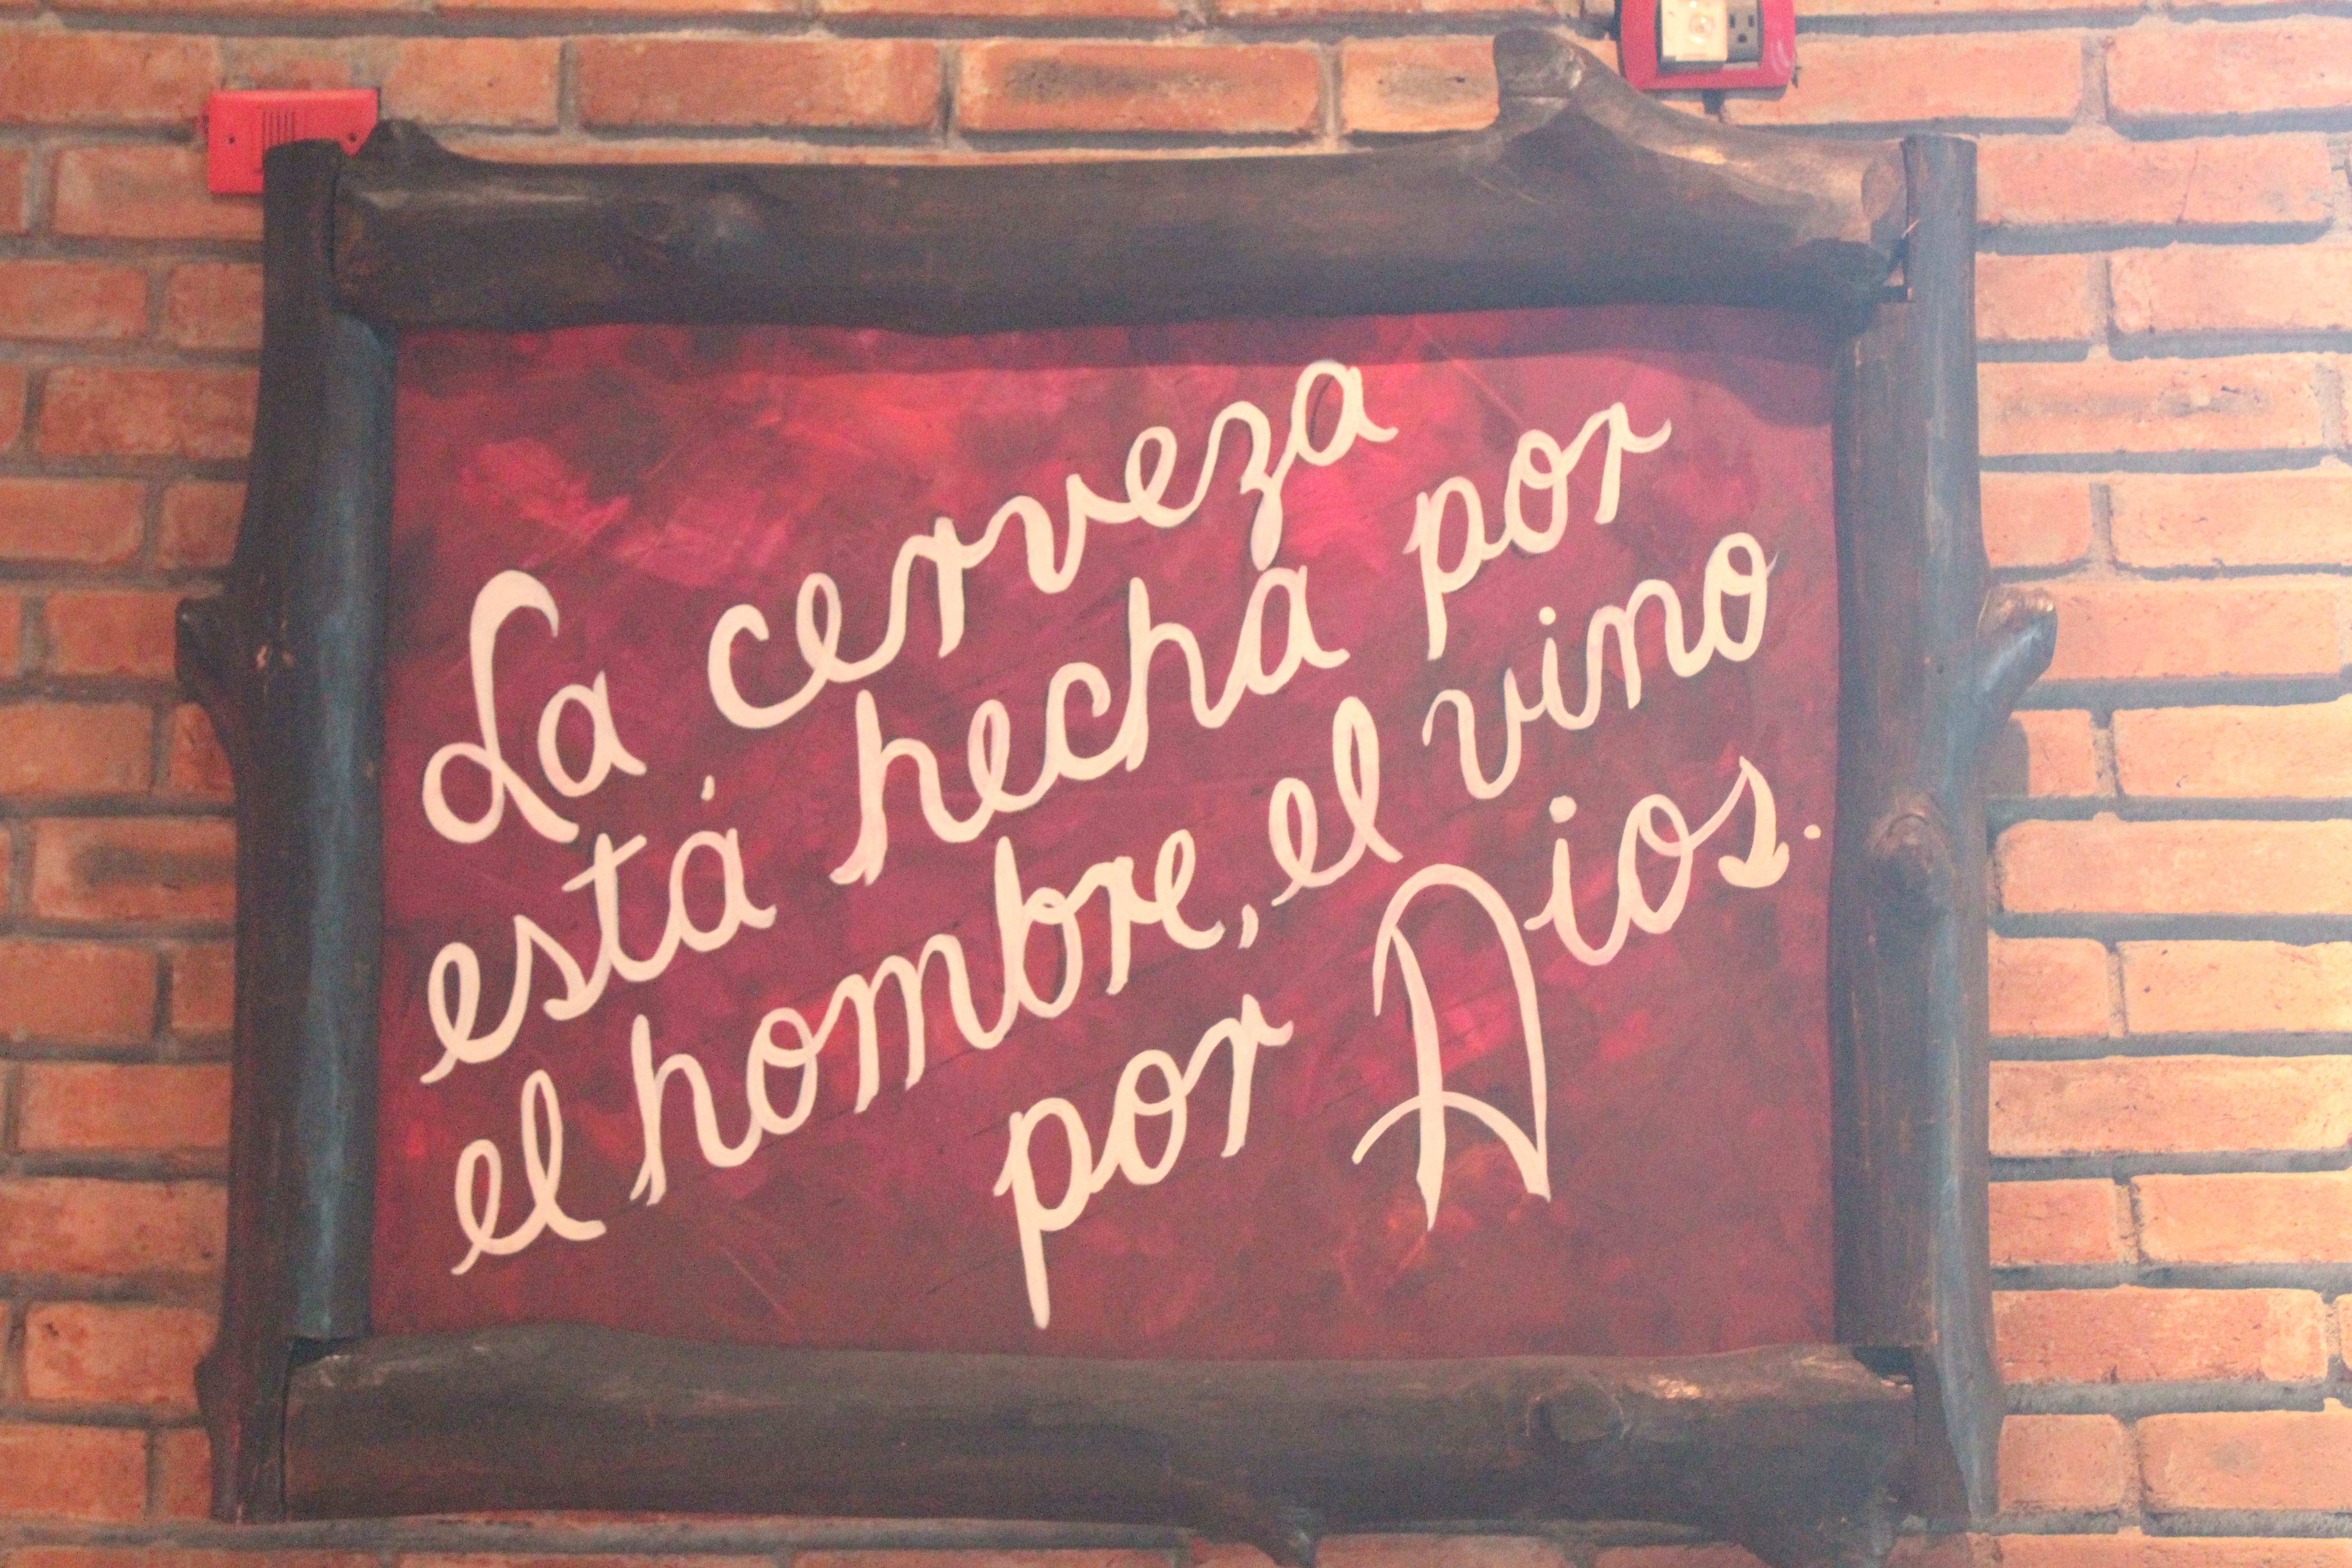 La cerveza
está hecha por
el hombre, el vino
por Dios.